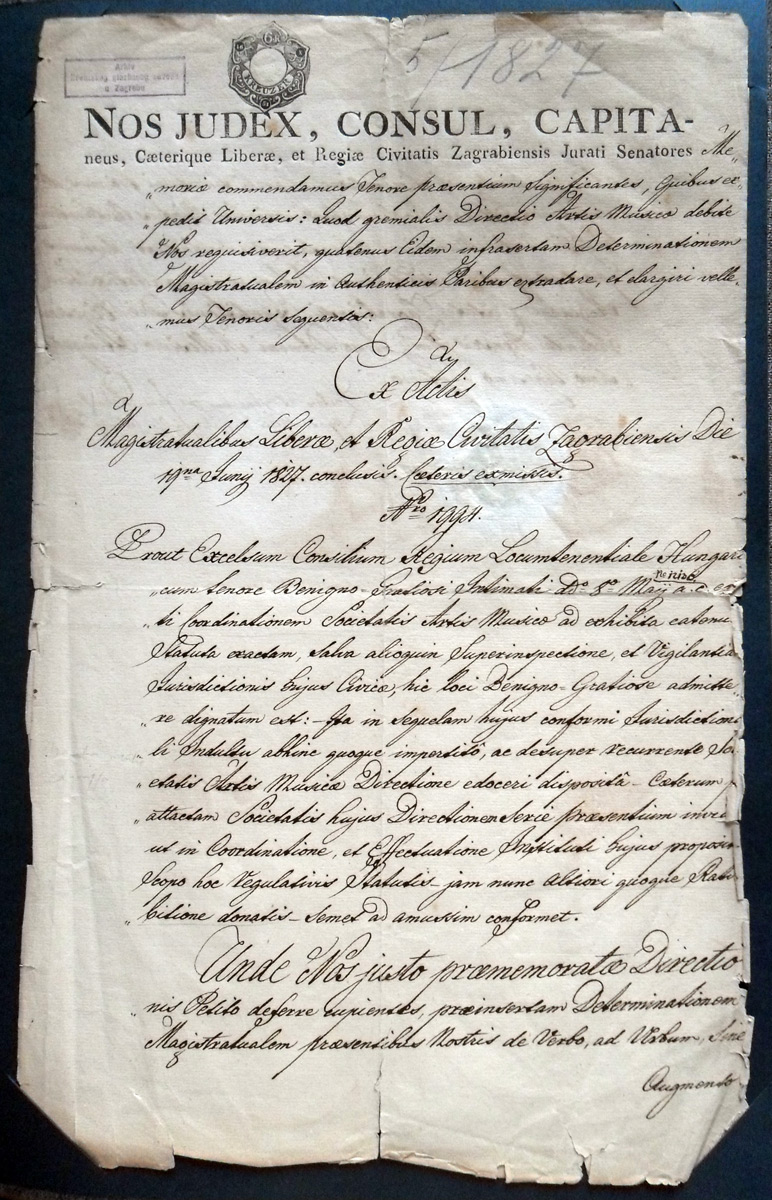 6 K
KREUZER
5/1827
Arhiv
u Zagrebu
NOS JUDEX, CONSUL, CAPITA-
neus, Cæterique Liberæ, et Regiæ Civitatis Zagrabiensis Jurati Senatores Me-
"moriæ commendamus Tenore præsentium Significantes, Quibus ex-
"pedit Universis: Quod gremialis Directio Artis Musicæ debite
Nos requisiverit, quatenus Eidem infrasertam Determinationem
Magistratualem in Authenticis Paribus extradare, et elargiri velle-
"mus Tenoris Sequentis:
Ex Actis
Magistratualibus Liberæ, et Regiæ Civitatis Zagrabiensis Die
19na Junij 1827. conclusis. Cæteris exmissis.
Nro 1994.
Prout Excelsum Consilium Regium Locumtenentiale Hungari
"cum tenore Benigno-Gratiosi Intimati ddo 8o Maij a. c.
"ti Coordinationem Societatis Artis Musicæ ad exhibita eatenus
Statuta exactam, salva alioquin Superinspectione, et Vigilantia
Jurisdictionis hujus Civicæ, hic loci Benigno-Gratiose admitte-
"re dignatum est:- Ita in sequelam hujus conformi Jurisdictiona
"li Indultu abhinc quoque impertitô, ac desuper recurrente So
"cietatis Artis Musicæ Directione edoceri dispositâ - Cæterum
"attactam Societatis hujus Directionem Serie præsentium invi
ut in Coordinatione, et Effectuatione Instituti hujus proposit
Scopo hoc regulativis Statutis jam nunc Altiori quoque Rati
"bitione donatis - Semet ad amussim conformet.
Unde Nos justo præmemoratæ Directio
"nis Petito deferre cupientes, præinsertam Determinationem
Magistratualem præsentibus Nostris de Verbo, ad Verbum, Sine
Augmento